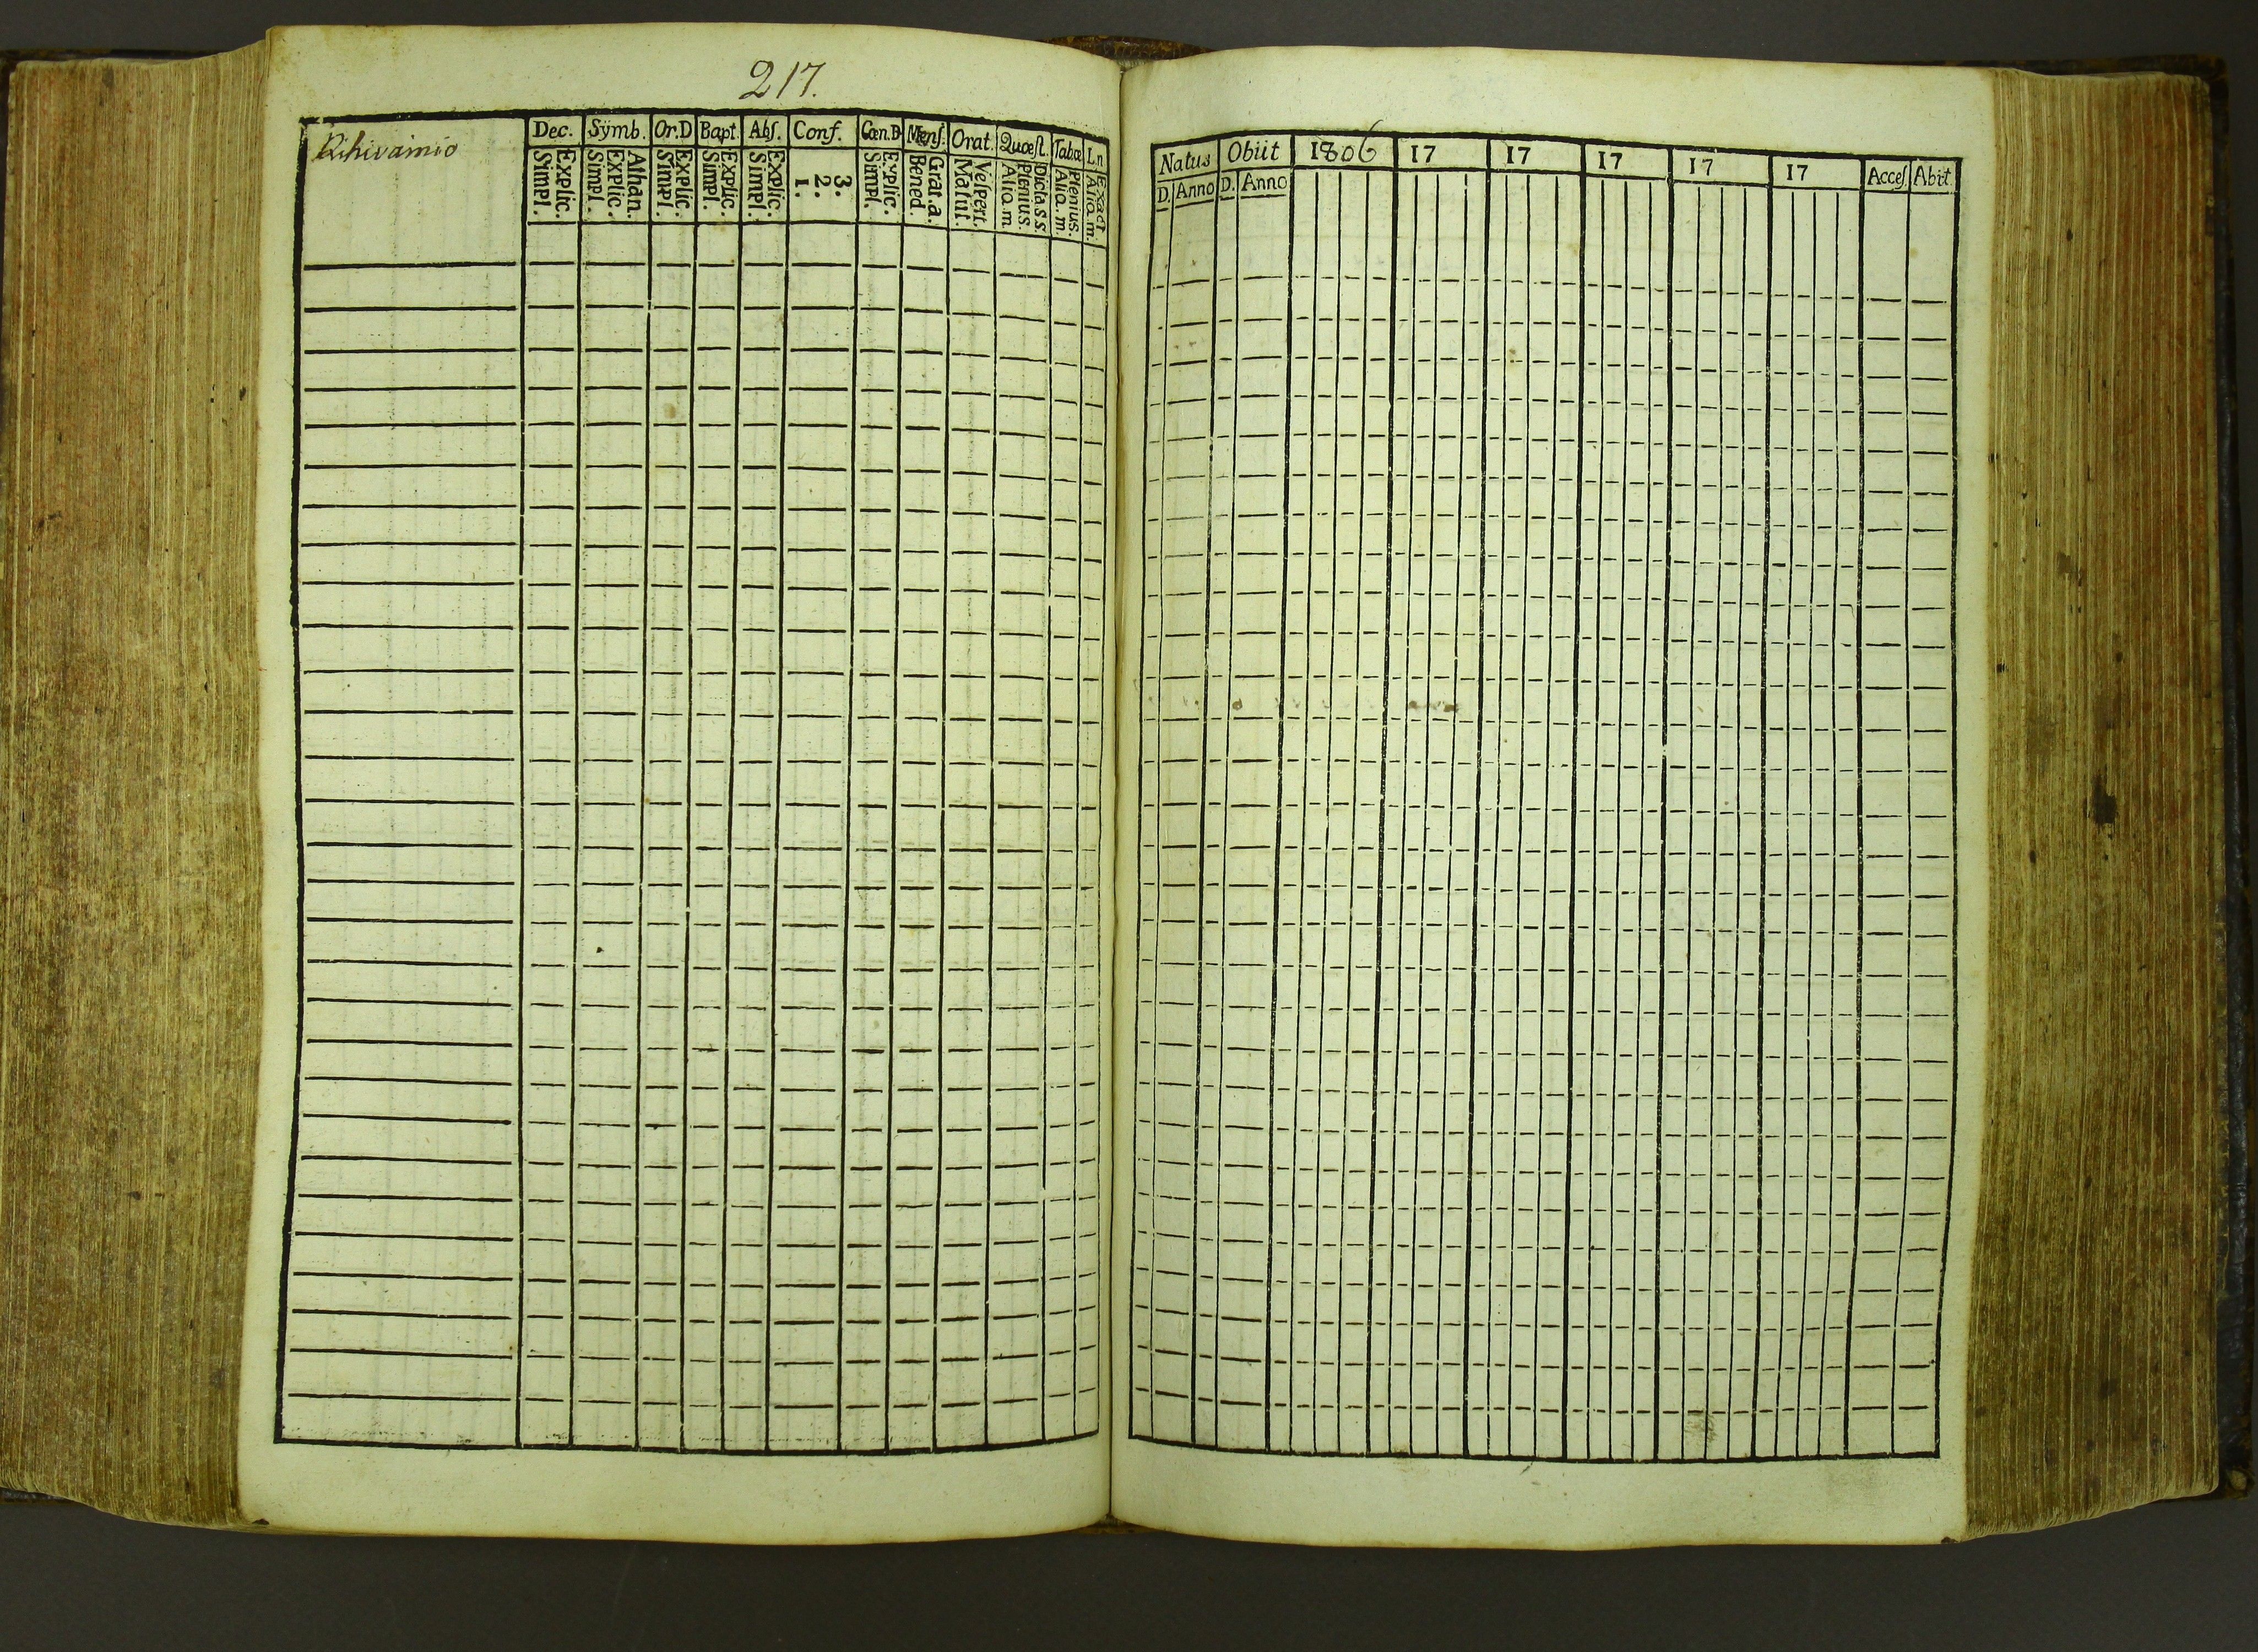 217.
Rihivainio
Dec. Symb. Or.D Bapt. Abſ. Conf. Cœn.D. Menſ. Orat. Quœſt. Tabœ L.n
Simpl. Explic. Simpl. Explic. Athan. Simpl. Explic. Simpl. Explic. Simpl. Explic. 1. 2. 3. Simpl. Explic. Bened. Grat.a. Matut. Veſpert. Alio.m Plenius. Dicta.s.s. Aliq.m Plenius. Aliq.m. Exact
Natus Obiit 1806 17 17 17 17 17 Acceſ. Abit.
D. Anno D. Anno